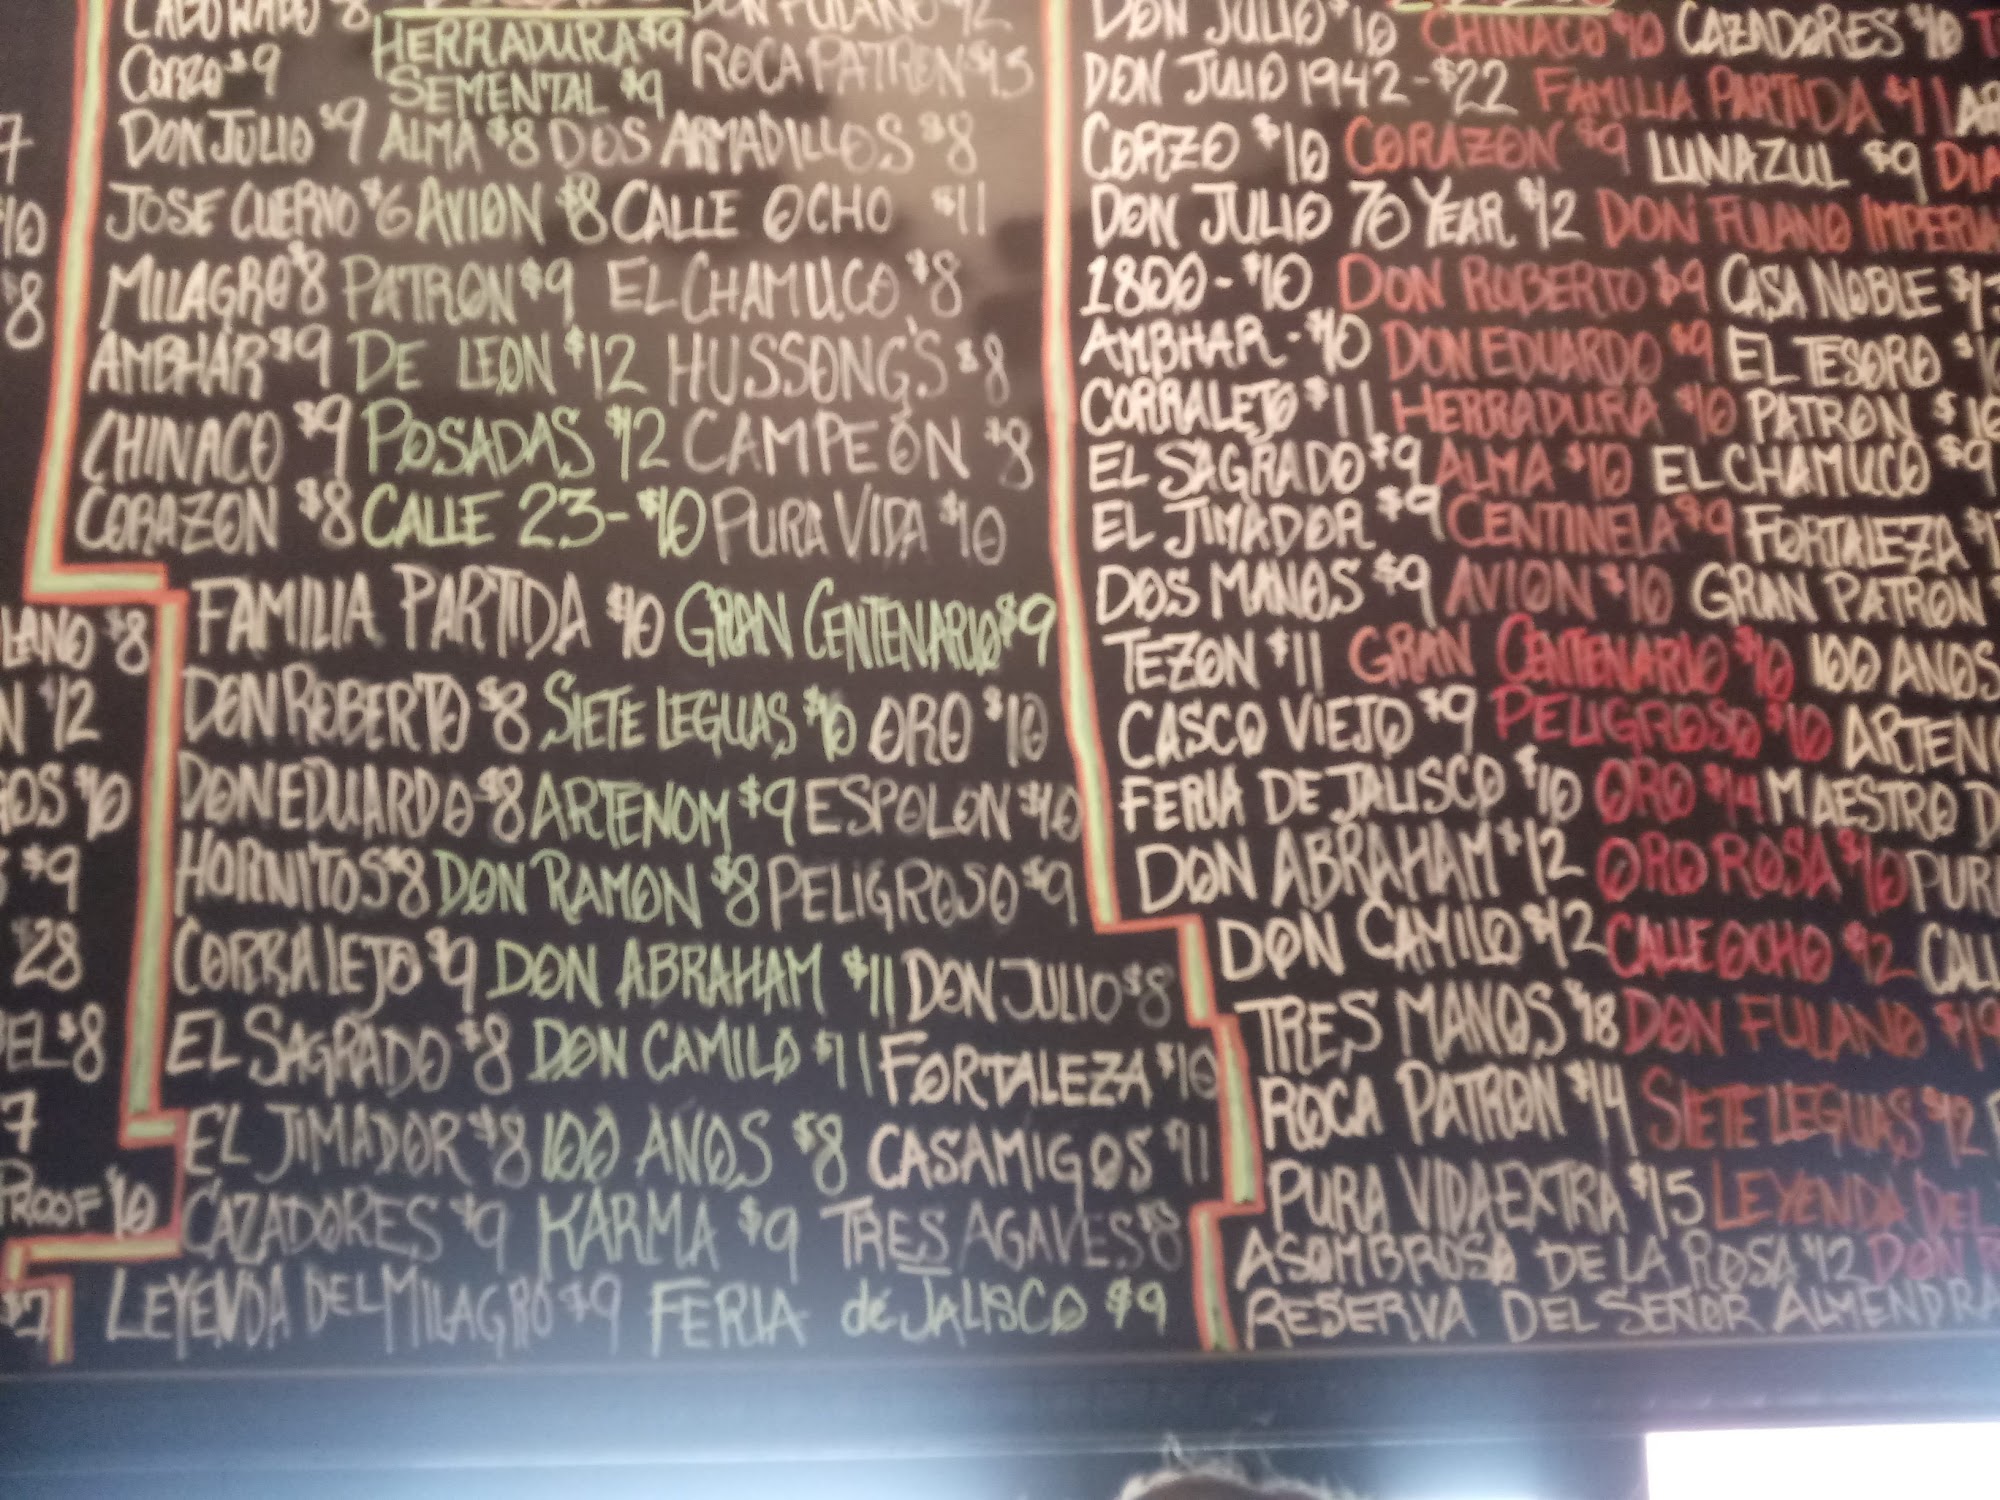 CABO WABO $8 DON FULANO $12
HERRADURA $9
CORZO $9 ROCA PATRON $13
SEMENTAL $9
DON JULIO $9 ALMA $8 DOS ARMADILLOS $8
JOSE CUERVO $6 AVION $8 CALLE OCHO $11
MILAGRO $8 PATRON $9 EL CHAMUCO $8
AMBHAR $9 DE LEON $12 HUSSONG'S $8
CHINACO $9 POSADAS $12 CAMPEÓN $8
CORAZON $8 CALLE 23-$10 PURA VIDA $10
FAMILIA PARTIDA $10 GRAN CENTENARIO $9
DON ROBERTO $8 SIETE LEGUAS $10 ORO $10
DON EDUARDO $8 ARTENOM $9 ESPOLON $10
HORNITOS $8 DON RAMON $8 PELIGROSO $9
CORRALEJO $9 DON ABRAHAM $11 DON JULIO $8
EL SAGRADO $8 DON CAMILO $11 FORTALEZA $10
EL JIMADOR $8 100 ANOS $8 CASAMIGOS $11
CAZADORES $9 KARMA $9 TRES AGAVES $8
LEYENDA DEL MILAGRO $9 FERIA de JALISCO $9
DON JULIO $10 CHINACO $10 CAZADORES $10
DON JULIO 1942-$22 FAMILIA PARTIDA $11
CORZO $10 CORAZON $9 LUNAZUL $9
DON JULIO 70 YEAR $12 DON FULANO
1800-$10 DON ROBERTO $9 CASA NOBLE
AMBHAR-$10 DON EDUARDO $9 EL TESORO
CORRALEJO $11 HERRADURA $10 PATRON $10
EL SAGRADO $9 ALMA $10 EL CHAMUCO $9
EL JIMADOR $9 CENTINELA $9 FORTALEZA
DOS MANOS $9 AVION $10 GRAN PATRON
TEZON $11 GRAN CENTENARIO $10 100 ANOS
CASCO VIEJO $9 PELIGROSO $10 ARTENO
FERIA DE JALISCO $10 ORO $14 MAESTRO D
DON ABRAHAM $12 ORO ROSA $10 PUR
DON CAMILO $12 CALLE OCHO $12 CALL
TRES MANOS $18 DON FULANO $19
ROCA PATRON $14 SIETE LEGUAS $12
PURA VIDA EXTRA $15 LEYENDA DEL
ASOMBROSO DE LA ROSA $12 DON R
RESERVA DEL SEÑOR ALMENDRA
7
$10
$8
LANO $8
N $12
OS $10
$9
$28
EL $8
7
PROOF $10
$7